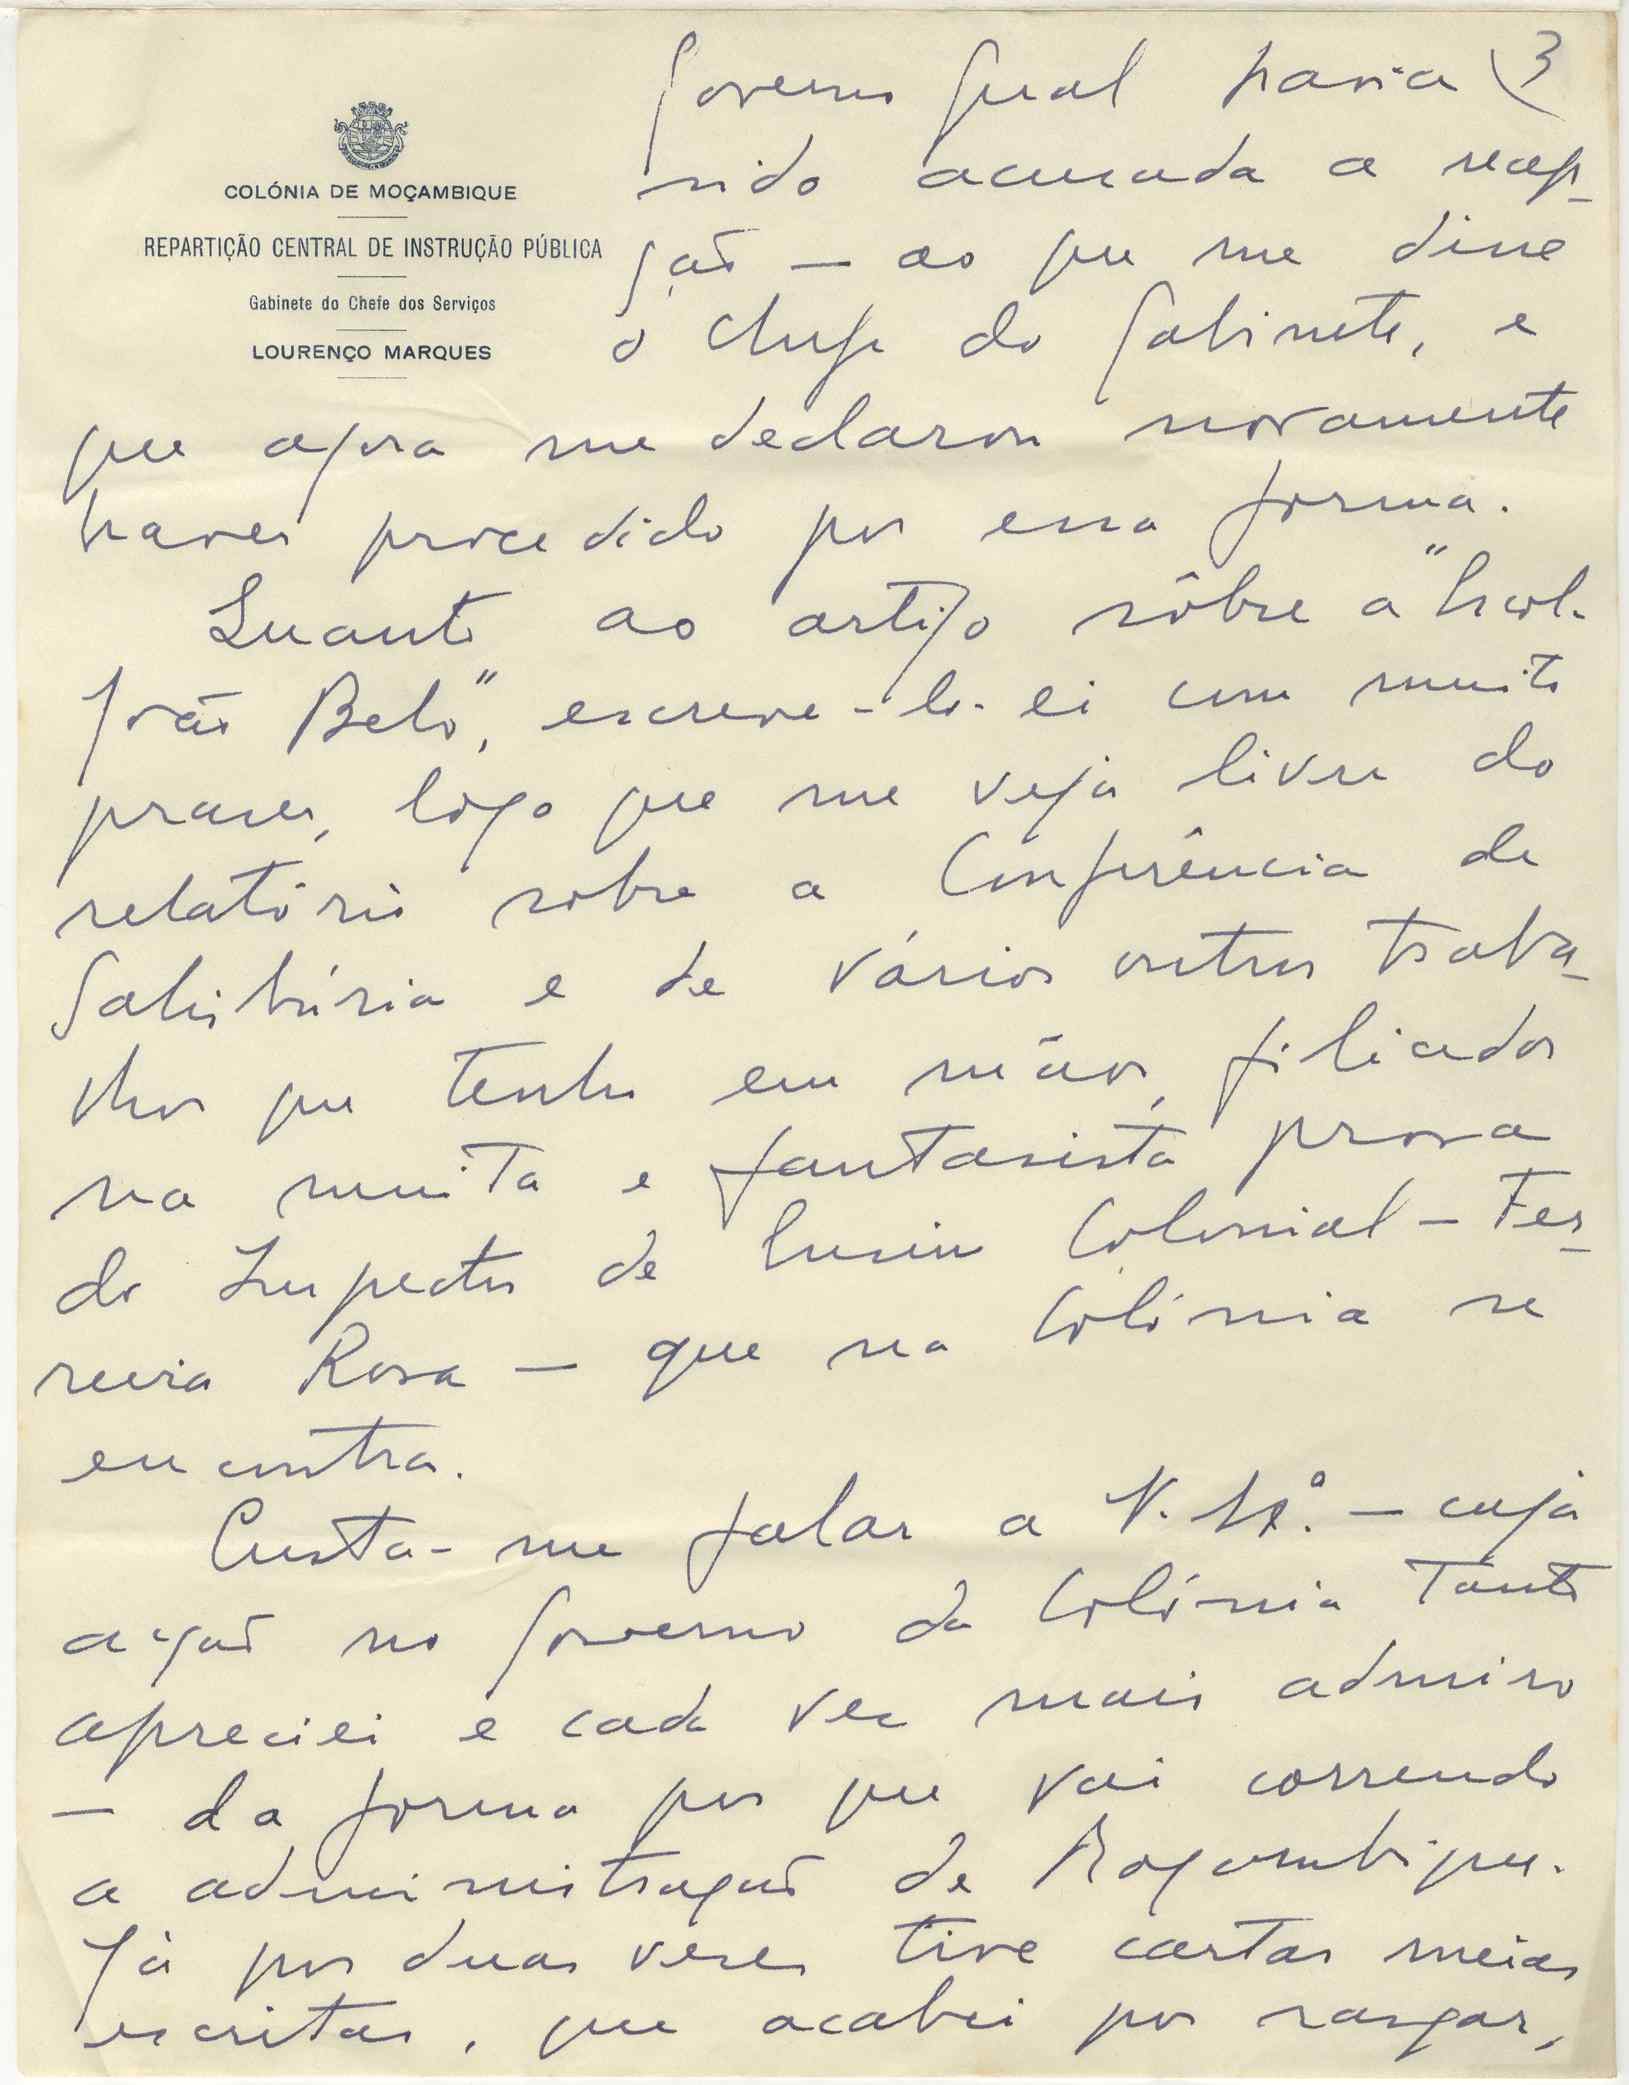 COLÓNIA DE MOÇAMBIQUE
REPARTIÇÃO CENTRAL DE INSTRUÇÃO PÚBLICA
Gabinete do Chefe dos Serviços
LOURENÇO MARQUES
3
Governo Geral havia
sido acusada a recep-
ção — ao que me disse
o Chefe do Gabinete, e
que agora me declarou novamente
haver procedido por essa forma.
Quanto ao artigo sôbre a "Escola
João Belo", escreve-lo-ei com muito
prazer, logo que me veja livre do
relatório sobre a Conferência de
Salisbúria e de vários outros traba-
lhos que tenho em mãos, filiados
na muita e fantasista prosa
do Inspector de Ensino Colonial — Fer-
reira Rosa — que na Colónia se
encontra.
Custa-me falar a V. Ex.ª — cuja
acção no Governo da Colónia tanto
apreciei e cada vez mais admiro
— da forma por que vai correndo
a administração de Moçambique.
Já por duas vezes tive cartas meias
escritas, que acabei por rasgar,